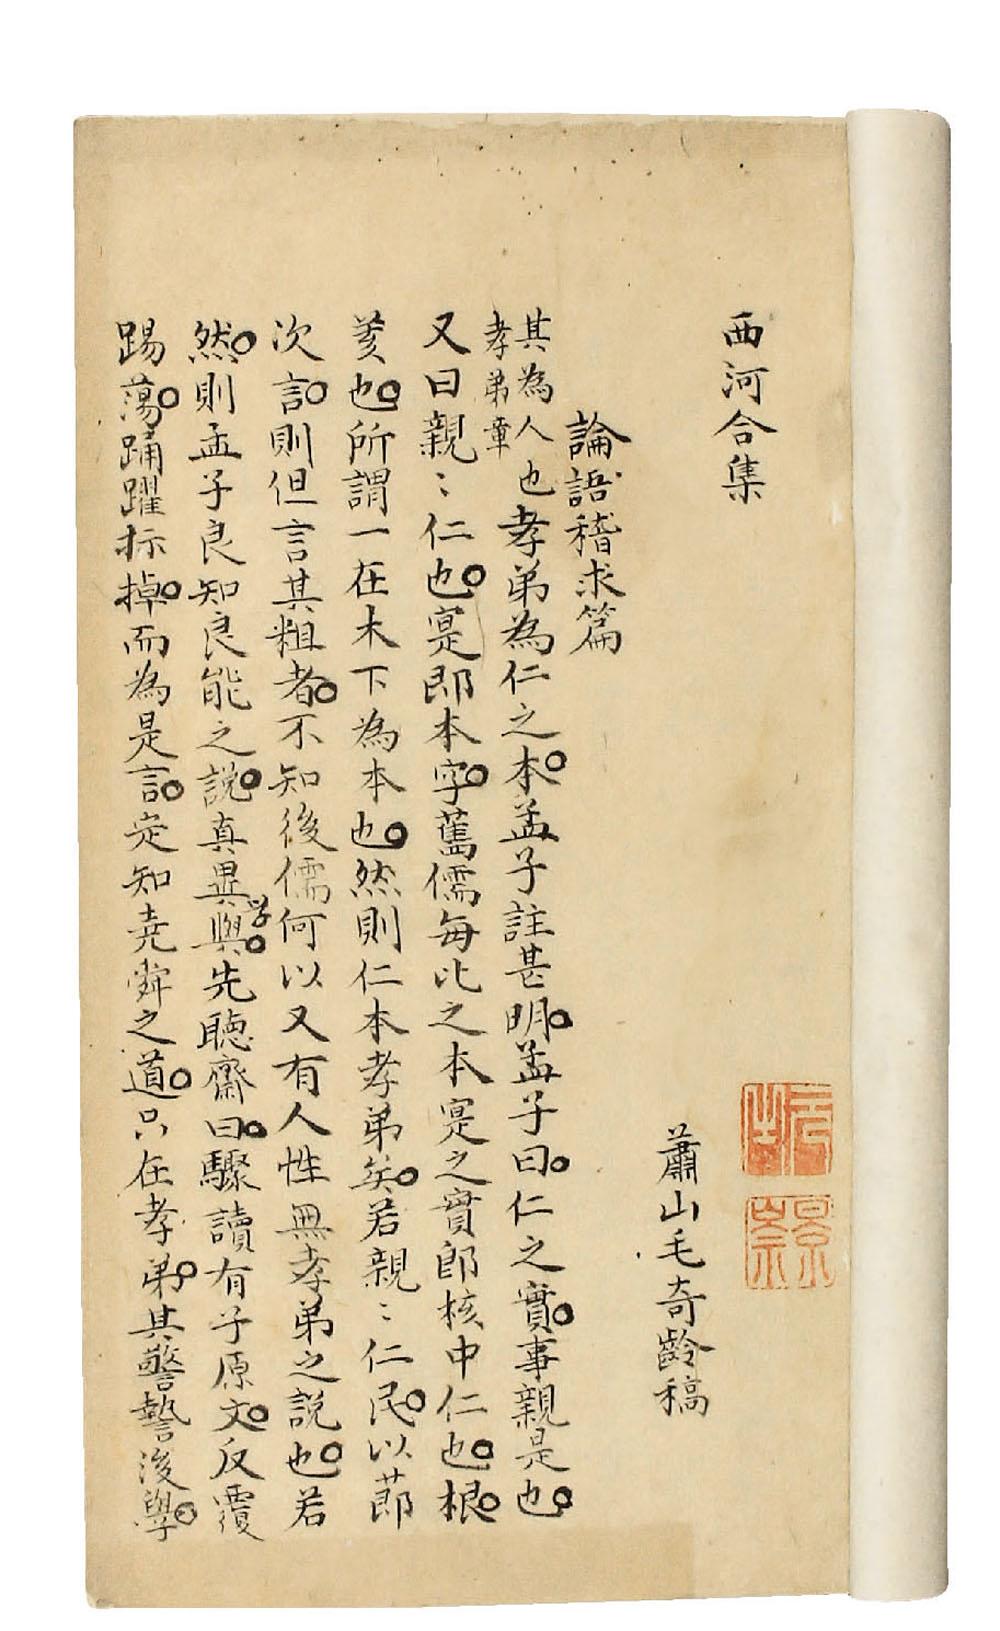 西河合集
蕭山毛奇齡稿
論語稽求篇
其為人也孝弟章
孝弟為仁之本孟子註甚明孟子曰仁之實事親是也
又曰親〻仁也寔即本字舊儒每比之本寔之實即核中仁也根
荄也所謂一在木下為本也然則仁本孝弟矣若親〻仁民以節
次言則但言其粗者不知後儒何以又有人性無孝弟之說也若
然則孟子良知良能之說真異學與先聽齋曰驟讀有子原文反覆
踢蕩踊躍标掉而為是言定知堯舜之道只在孝弟其警後學